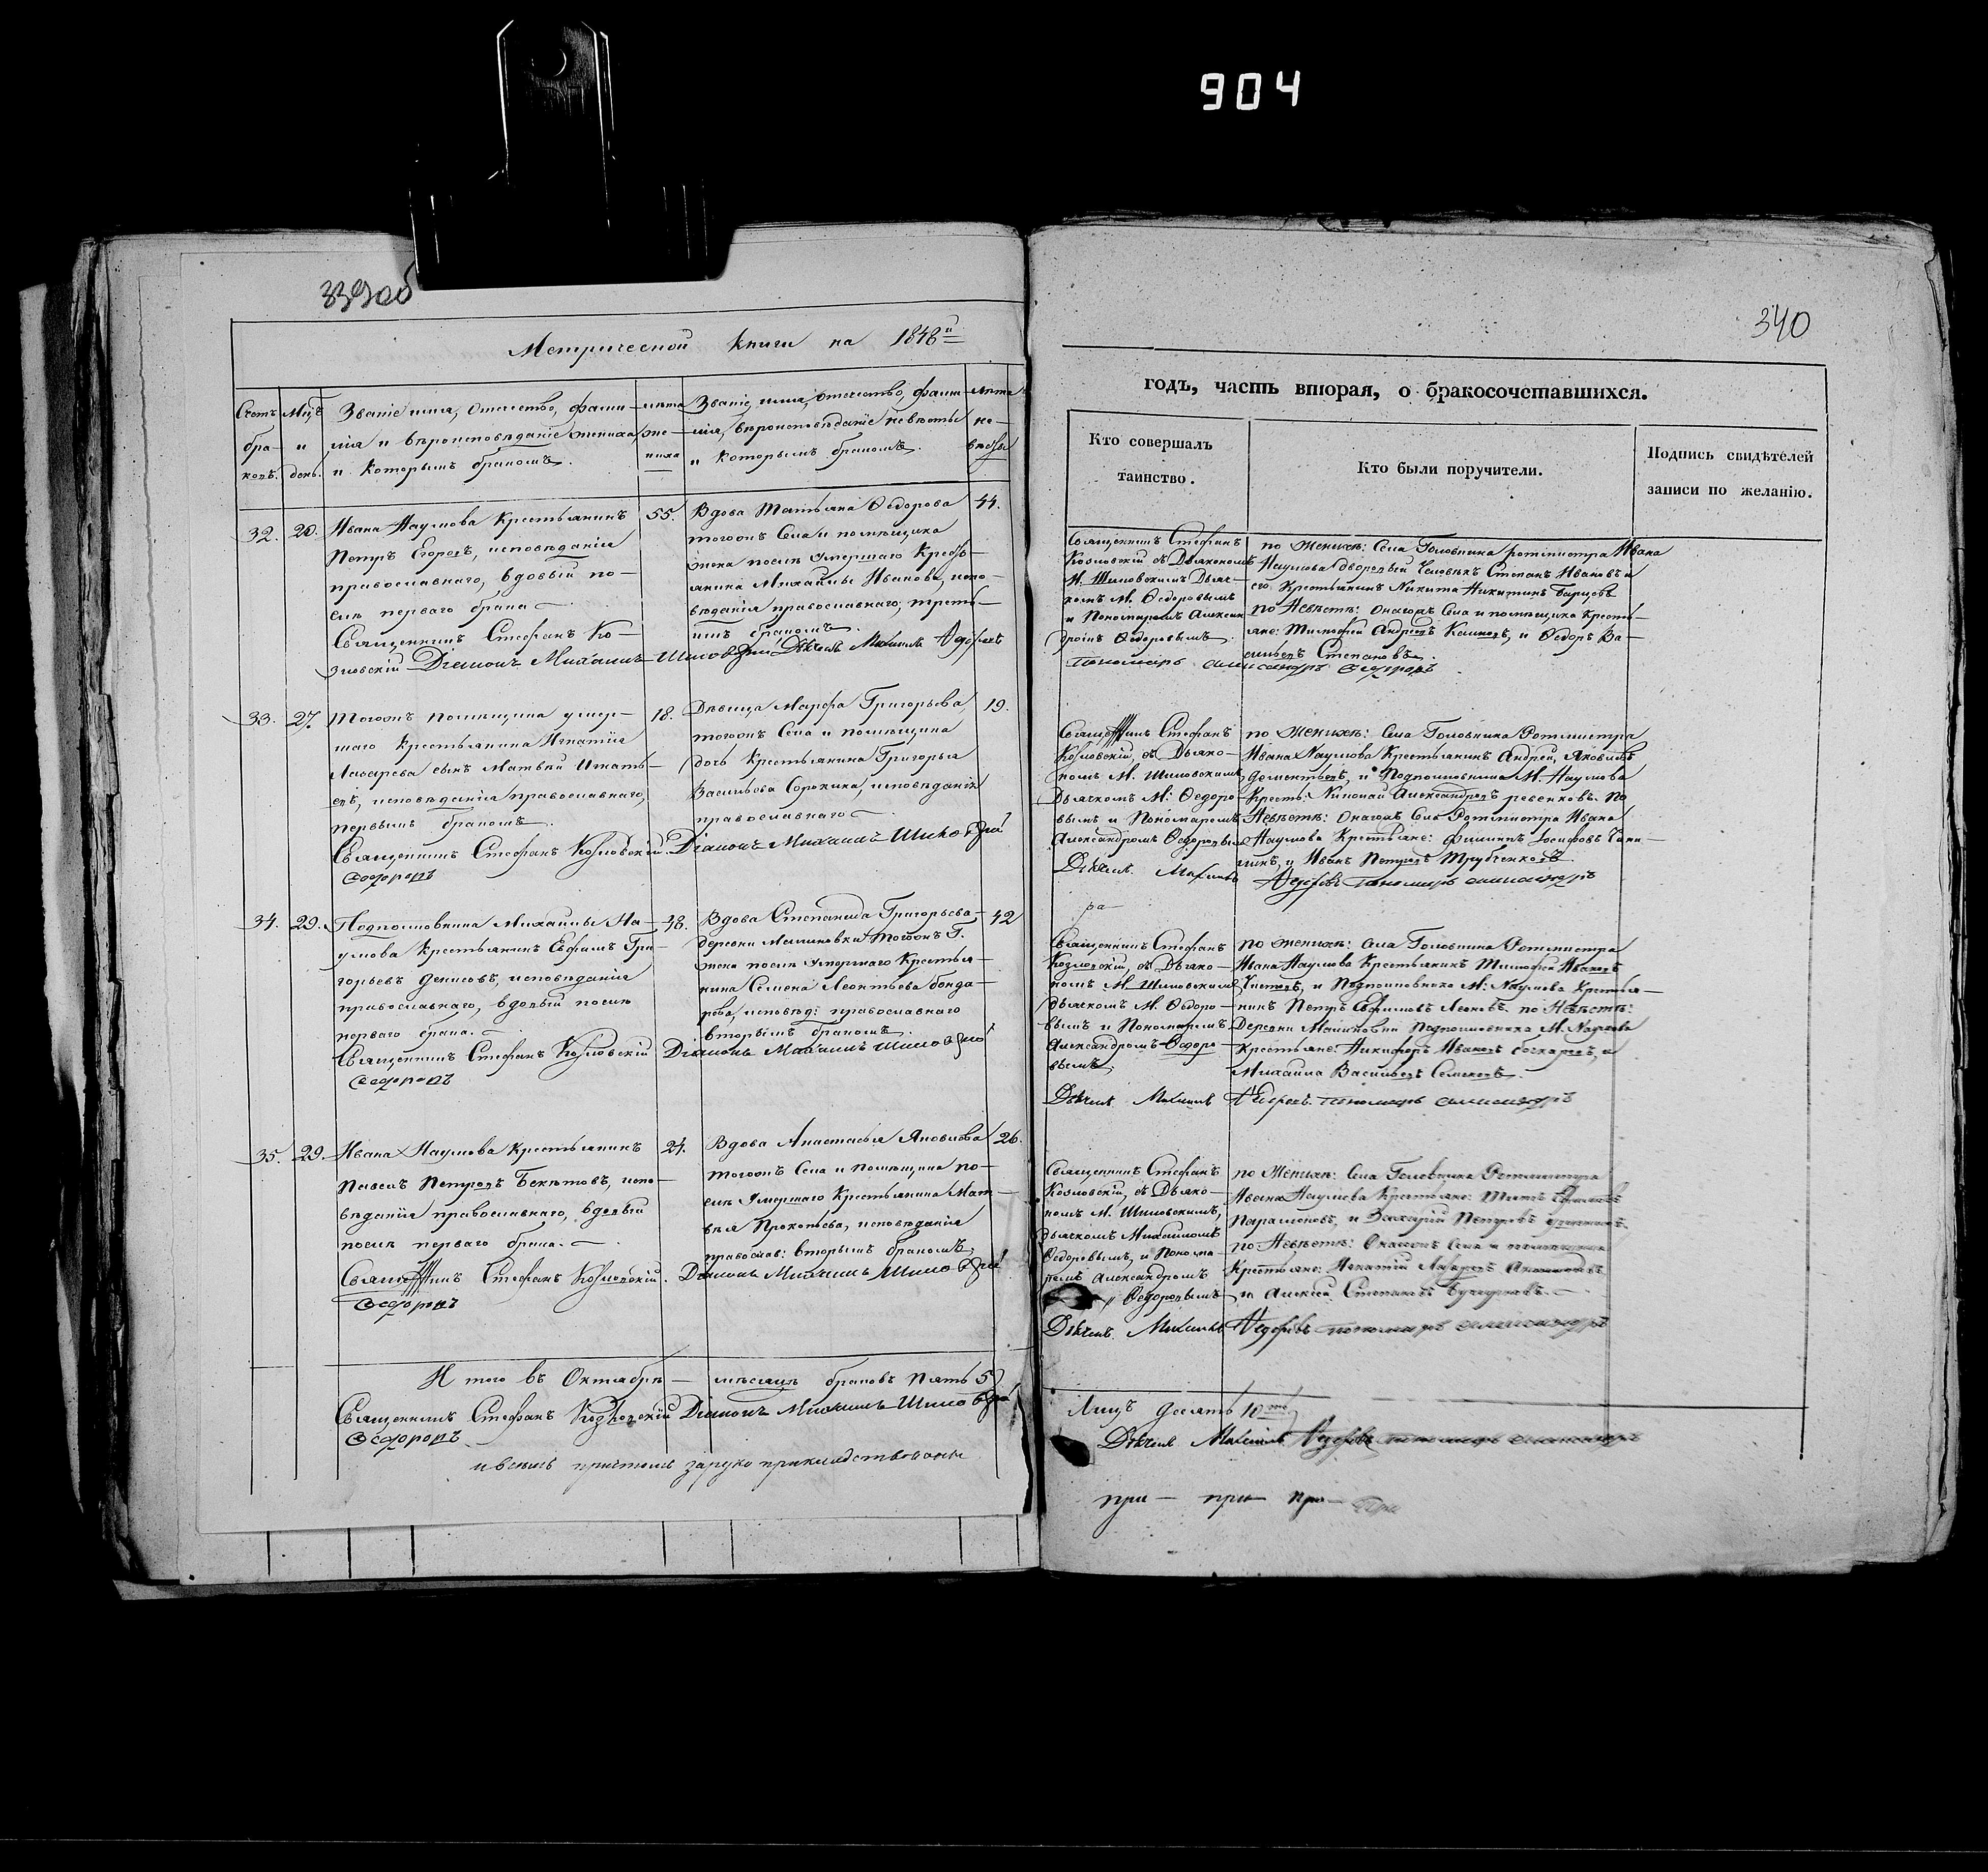 904
339об
340
Метрической книги на 1848й
годъ, часть вторая, о бракосочетавшихся.
Счетъ браковъ.
Мцъ и день.
Званіе имя, отчество, фами-
лія и вѣроисповѣданіе жениха
и которымъ бракомъ.
лѣта жениха
Званіе, имя, отчество, фами-
лія, вѣроисповѣданіе невѣсты
и которымъ бракомъ.
лѣта невѣсты
Кто совершалъ
таинство.
Кто были поручители.
Подпись свидѣтелей
записи по желанію.
32. 20.
Ивана Наумова Крестьянинъ
Петръ Егоровъ, исповѣданія
православнаго, вдовый по-
слѣ перваго брака
Священникъ Стефанъ Ко-
зловскій Діаконъ Михаилъ
55.
Вдова Татьяна Ѳедорова
тогожъ Села и помѣщика
жена послѣ умершаго Кресть-
янина Михайлы Иванова, испо-
вѣданія православнаго, треть-
имъ бракомъ.
44.
Священникъ Стефанъ
Козловскій съ Дьякономъ
М. Шиловскимъ Дьяч-
комъ М. Ѳедоровымъ
и Пономаремъ Алексан-
дромъ Ѳедоровымъ
по Женихѣ: Села Головкина ротмистра Ивана
Наумова дворовый Человѣкъ Степанъ Ивановъ и
его Крестьянинъ Никита Никитинъ
по Невѣстѣ: онагожъ Села и помѣщика Кресть-
яне: Тимофей Андреевъ и Ѳедоръ Ва-
сильевъ Степановъ.
пономарь александръ Ѳедоровъ
33. 27.
Тогожъ помѣщика умер-
шаго Крестьянина Игнатія
Лазарева сынъ Матвѣй Игнать-
евъ, исповѣданія православнаго,
первымъ бракомъ.
Священникъ Стефанъ Козловскій. Діаконъ Михаилъ
Ѳедоровъ
18.
Дѣвица Марфа Григорьева,
тогожъ Села и помѣщика
дочь Крестьянина Григорья
Васильева Сорокина, исповѣданія
православнаго
19.
Стефанъ
Козловскій, съ Дьяко-
номъ М. Шиловскимъ,
Дьячкомъ М: Ѳедоро-
вымъ и Пономаремъ
Александромъ Ѳедоровымъ
по Женихѣ: Села Головкина Ротмистра
Ивана Наумова Крестьянинъ Андрей Яковлевъ
Дементьевъ, и Подполковника М. Наумова
Кресть: Николай Александровъ ребенковъ. По
Невѣстѣ: Онагожъ Села Ротмистра Ивана
Наумова Крестьяне: Филиппъ Іосифовъ
и Иванъ Петровъ Трубченковъ
Дьячекъ Михаилъ Ѳедоровъ пономарь александръ
34. 29.
Подполковника Михайлы На-
умова Крестьянинъ Ефимъ Гри-
горьевъ Денисовъ, исповѣданія
православнаго, вдовый послѣ
перваго брака.
Священникъ Стефанъ Козловскій Діаконъ Михаилъ
Ѳедоровъ
48.
Вдова Степанида Григорьева
деревни Малиновки тогожъ Г.
жена послѣ умершаго Крестья-
нина Семена Леонтьева бонда-
рева, исповѣд: православнаго
вторымъ бракомъ
42
ра
Священникъ Стефанъ
Козловскій, съ Дьяко-
номъ М. Шиловскимъ
дьячкомъ М. Ѳедоро-
вымъ и Пономаремъ
Александромъ Ѳедоро-
вымъ
по женихѣ: села Головкина Ротмистра
Ивана Наумова Крестьянинъ Тимофей Ивановъ
и Подполковника М: Наумова Крестья-
нинъ Петръ Ефимовъ Леоновъ. по Невѣстѣ:
Деревни Малиновки Подполковника М. Наумова
Крестьяне: Никифоръ Ивановъ бочкаревъ, и
Михаила Васильевъ Семеновъ.
Дьячекъ Михаилъ Ѳедоровъ. пономарь александръ
35. 29.
Ивана Наумова Крестьянинъ
Павелъ Петровъ Бекѣтовъ, испо-
вѣданія православнаго, вдовый
послѣ перваго брака.
Стефанъ Козловскій. Діаконъ Михаилъ
Ѳедоровъ
24.
Вдова Анастасья Яковлева
тогожъ Села и помѣщика по-
слѣ умершаго Крестьянина Мат-
вѣя Прокофьева, исповѣданія
православ: вторымъ бракомъ
26.
Священникъ Стефанъ
Козловскій, съ Дьяко-
номъ М. Шиловскимъ,
дьячкомъ Михайломъ
Ѳедоровымъ, и Понома-
ремъ Александромъ
Ѳедоровымъ
по Женихѣ: Села Головкина Ротмистра
Ивана Наумова Крестьяне: Титъ
Парамоновъ, и Захарій Петровъ
по Невѣстѣ: Онагожъ Села и помѣщика
Крестьяне: Игнатій Лазаревъ
и Алексѣй Степановъ
Дьячекъ Михаилъ Ѳедоровъ пономарь александръ
И того въ Октябрѣ мѣсяцѣ браковъ пять 5
Священникъ Стефанъ Козловскій Діаконъ Михаилъ
Ѳедоровъ
Лицъ десять 10
Дьячекъ Михаилъ Ѳедоровъ пономарь александръ
при — при — при — при